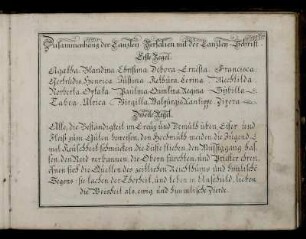 Zusammenhang der Cantzley Versalien mit der Cantzley Schrifft
Erste Regel.
Agatha Blandina Christina Debora Ernesta Francisca
Gertrudis Henrica Justina Kathrina Corina Mechtilda
Norberta Ottala Paulina Quintina Regina Sybilla
Tabea Ulrica Virgilia Walpurgis Xantippe Zipora
Zweite Regel.
Alle, die Beständigkeit im Creutz und Demuth üben, Eifer und
Fleiß zum Guten beweisen, den Hochmuth meiden, die Jugend
mit Keuschheit schmücken, die Laster fliehen, den Müssiggang has-
sen, den Neid verbannen, die Obern fürchten, und Priester ehren,
sich die Quellen der zeitlichen Reichthums und himmlische
Segens, so lachen der Thorheit, und leben in Unschuld, lieben
die Weisheit als ewig und himmlische Zierde.